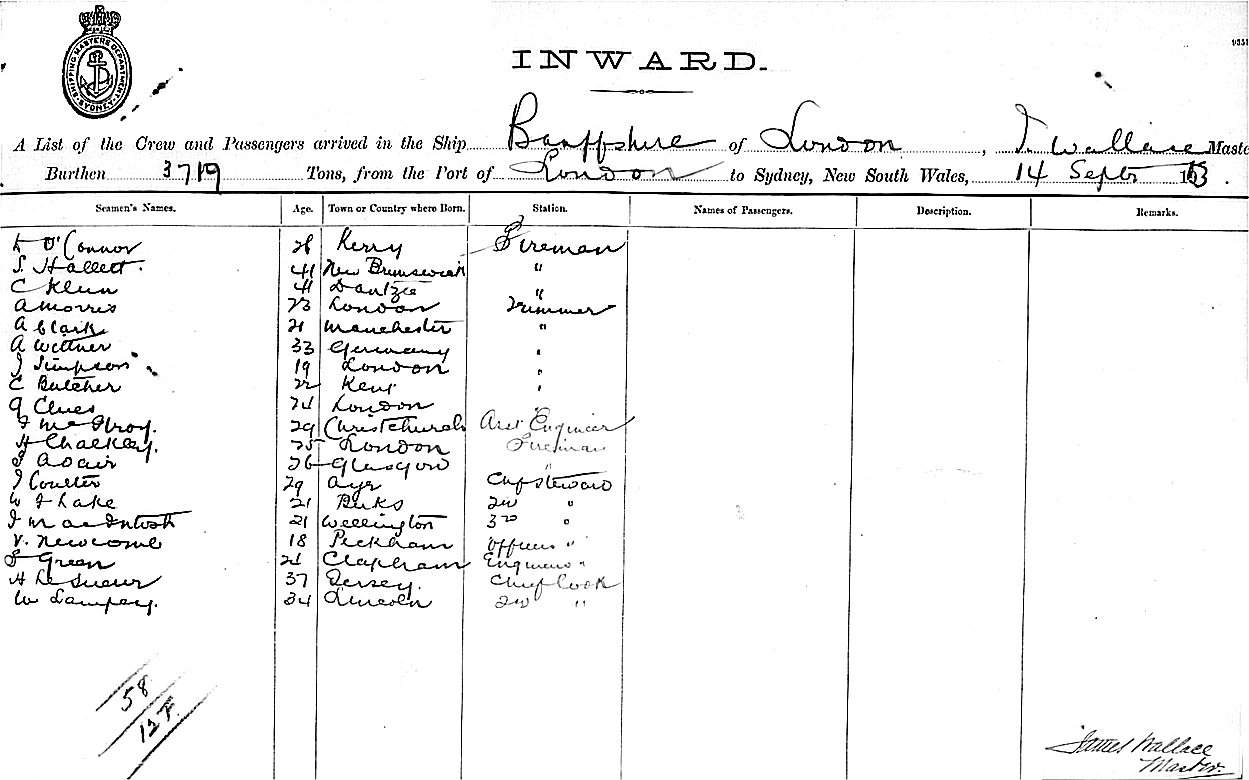 9351
SHIPPING MASTERS DEPARTMENT
SYDNEY
INWARD.
A List of the Crew and Passengers arrived in the Ship Banffshire of London, J. Wallace Maste
Burthen 3719 Tons, from the Port of London to Sydney, New South Wales, 14 Septr
Seamen's Names. Age. Town or Country where Born. Station. Names of Passengers. Description. Remarks.
O'Connor 28 Kerry Fireman
S. Hallett. 41 New Brunswick "
C Klein 41 Dantzic "
A Morris 23 London Trimmer
A Clark 21 Manchester "
A Wittner 33 Germany "
J Simpson 19 London "
C Butcher 22 Kent "
G Clues 24 London
J McIlroy. 29 Christchurch Asst Engineer
H Chalkley. 25 London Fireman
J Adair 26 Glasgow "
J Coulter 29 Ayr Chf Steward
W J Lake 21 Bucks 2nd "
J MacIntosh 21 Wellington 3rd "
V. Newcomb 18 Peckham Officers "
S Green 21 Clapham Engineers "
H Le Sueur 37 Jersey. Chief Cook
W Lampey. 34 Lincoln 2nd "
58
James Wallace
Master.